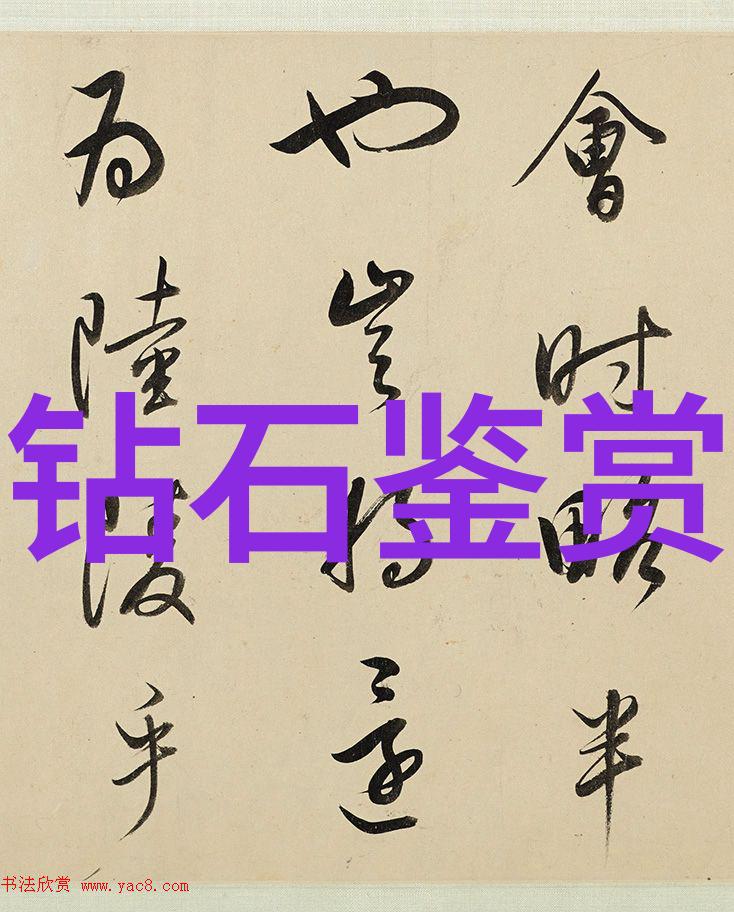 會時略半
也豈
為陸乎
钻石鉴赏
书法欣赏 www.yac8.com